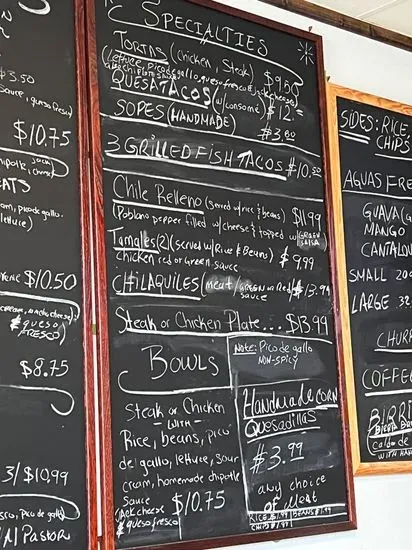 $3.50
sauce, queso fresco
$10.75
chipotle sauce
EATS
am, pico de gallo
lettuce)
$10.50
cream,
& queso
FRESCO
$8.75
3/$10.99
pico de gallo
Pastor
SPECIALTIES
TORTAS (chicken, Steak) $9.50
(lettuce, pico de gallo, queso fresco
QUESATACOS (w/consomé) $12.
SOPES (HANDMADE) $3.80
3 GRILLED FISH TACOS $10.50
Chile Relleno (served w/rice & beans) $11.99
(Poblano pepper filled w/cheese & topped w/GREEN SALSA
Tamales(2) (served w/Rice & Beans) $9.99
chicken red or Green sauce
CHILAQUILES (meat/GREEN or Red sauce $13.99
Steak or Chicken Plate... $13.99
BOWLS
Steak or Chicken
WITH
Rice, beans, pico
de gallo, lettuce, sour
cream, homemade chipotle
sauce
Jack cheese $10.75
& queso fresco
Note: Pico de gallo
NON-SPICY
Handmade CORN
Quesadillas
$3.99
any choice
of Meat
RICE $1.99 BEANS $1.99
CHIPS $1.99
SIDES: RICE
CHIPS
AGUAS FRE
GUAVA
MANGO
CANTALOU
SMALL 20
LARGE 32
CHUR
COFFEE
BIRRI
Caldo de
WITH HAN